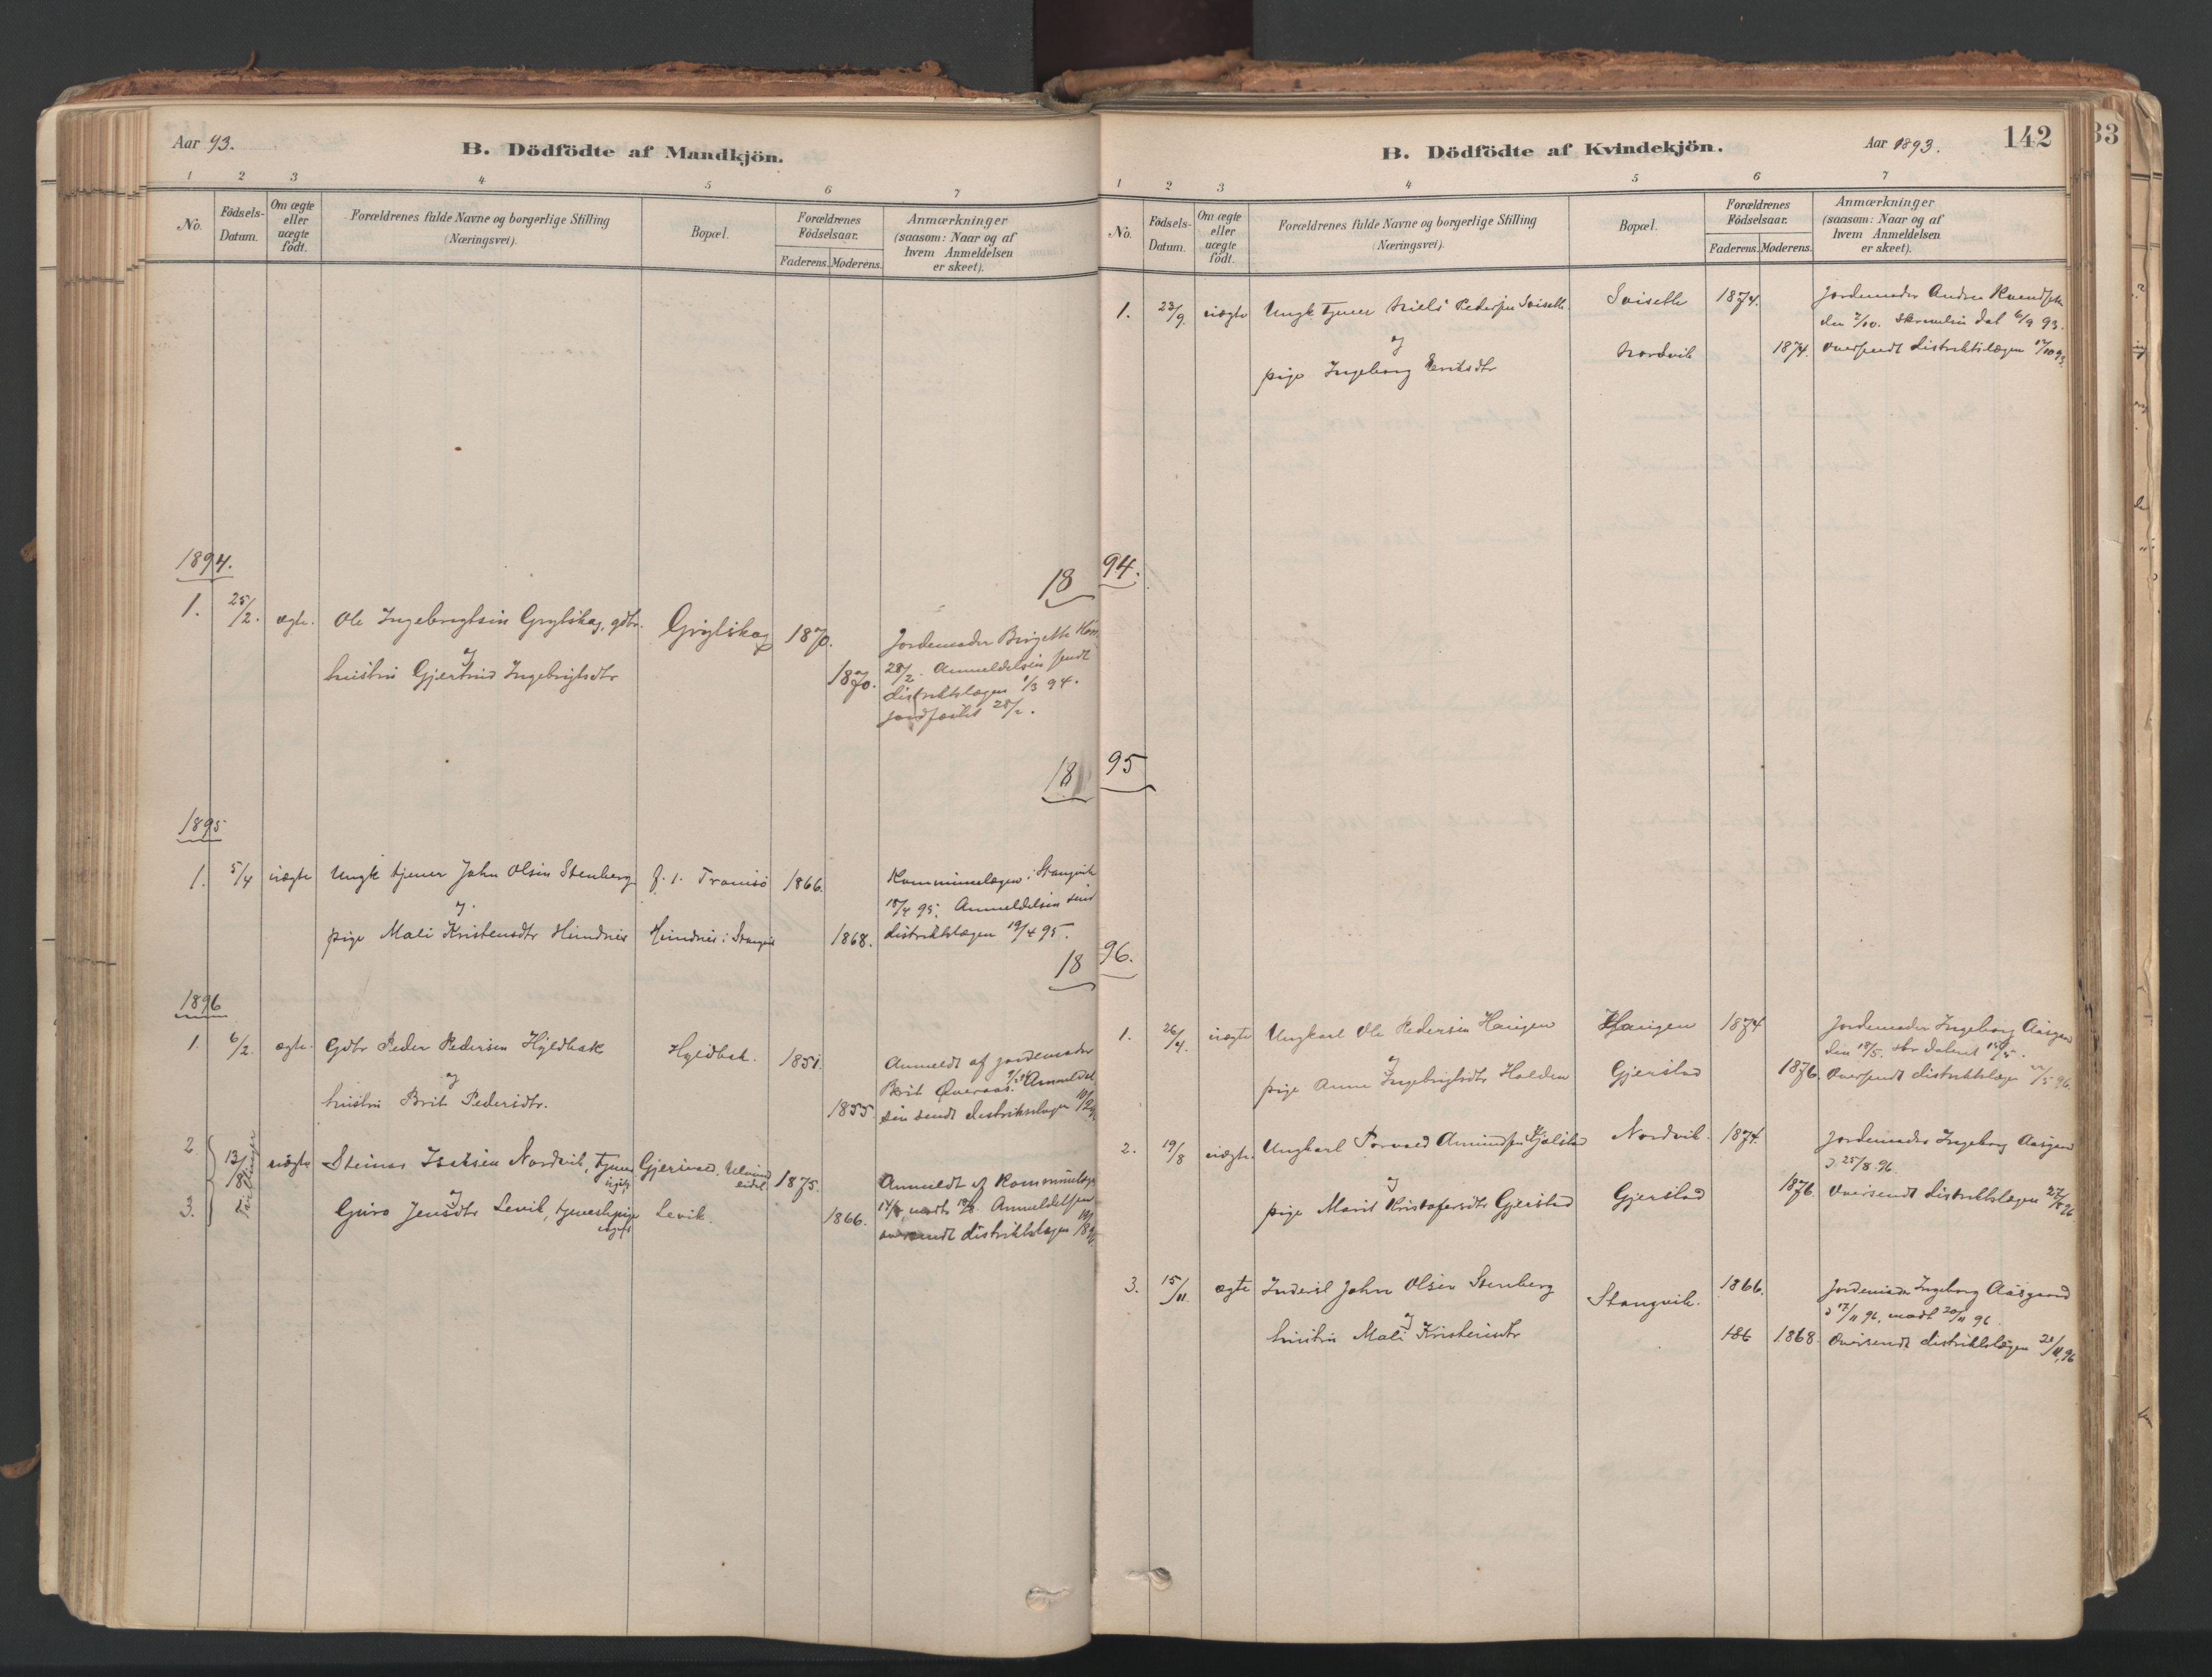 Aar 93.
B. Dödfödte af Mandkjön.
1 2 3 4 5 6 7
No.
Födsels-Datum.
Om ægte eller uægte födt.
Forældrenes fulde Navne og borgerlige Stilling (Næringsvei).
Bopæl.
Forældrenes Födselsaar.
Faderens. Moderens.
Anmærkninger (saasom: Naar og af hvem Anmeldelsen er skeet).
1894.
1. 25/2. ægte. Ole Ingebrigtsen Grytskog, gdbr. Grytskog 1870. Jordemoder Birgitte
og
hustru Gjertrud Ingebrigtsdtr 1870. 28/2. Anmeldelsen sendt
distriktslægen 1/3 94.
jordfæstet 28/2.
1895
1. 5/4 uægte Ungk tjener John Olsen Stenberg f. t. Tromsö 1866. Kommunelægen i Stangvik
og
18/4 95. Anmeldelsen send
pige Mali Kristensdtr Hindnes Hindnes i Stangvik 1868. distriktslægen 19/4 95.
1896
1. 6/2. ægte. Gdbr Peder Pedersen Hyldbak Hyldbak. 1851. Anmeldt af jordemoder
og
Brit Anmeldel
hustru Brit Pedersdtr. 1855. sen sendt distriktslægen
2 13/8 Tvillinger uægte Steinar Isaksen Nordvik, tjener Gjersvad. 1875. Anmeldt af Kommunelægen
ugift
og
3. Guro Jensdtr Levik, tjenestepige Levik. 1866. 14/8, Anmeldelsen
ugift
oversendt distriktslægen
B. Dödfödte af Kvindekjön.
Aar 1893.
142
33
1 2 3 4 5 6 7
No.
Födsels-Datum.
Om ægte eller uægte födt.
Forældrenes fulde Navne og borgerlige Stilling (Næringsvei).
Bopæl.
Forældrenes Födselsaar.
Faderens. Moderens.
Anmærkninger (saasom: Naar og af hvem Anmeldelsen er skeet).
1. 23/9. uægte Ungk tjener Niels Pedersen Sviseth. Sviseth 1874. Jordemoder Andrea
den 2/10. dat 93.
og
pige Ingeborg Eriksdtr Nordvik 1874. oversendt distriktslægen
1894.
1895
1896.
1. 26/4. uægte Ungkarl Ole Pedersen Haugen Haugen 1874 Jordemoder Ingeborg Aasgaard
den 18/5.
og
pige Anne Ingebrigtsdtr Halden Gjerstad 1876. Oversendt distriktslægen 22/5 96.
2. 19/8 uægte. Ungkarl Torvald Amundsen Nordvik. 1874. Jordemoder Ingeborg Aasgaard
d 25/8 96.
og
pige Marit Kristofersdtr Gjerstad Gjerstad 1876. Oversendt distriktslægen 27/8 96
3. 15/11. ægte Inderst John Olsen Stenberg Stangvik. 1866. Jordemoder Ingeborg Aasgaard
d 17/11 96, modt 20/11 96.
og
hustru Mali Kristensdtr 186 1868. Oversendt distriktslægen 20/11 96